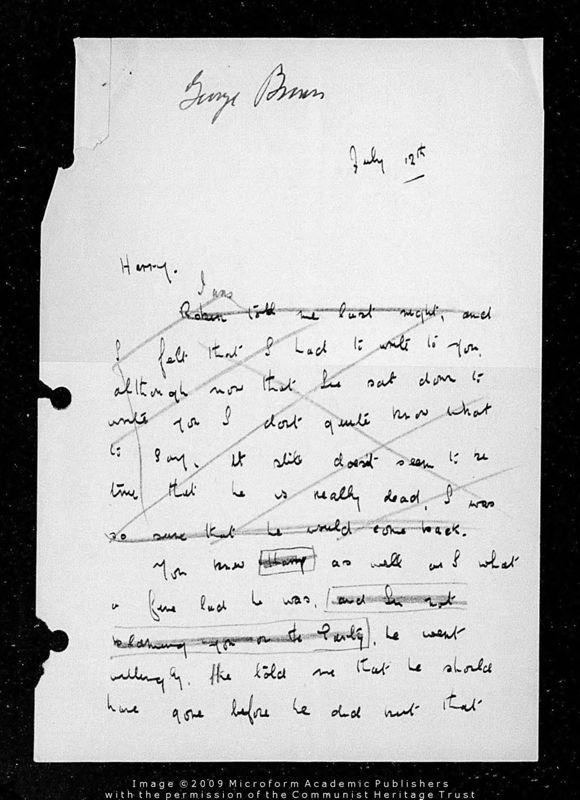 George Brown
July 12th
Harry.
I was
Robin told me last night, and
I felt that I had to write to you,
although now that I've sat down to
write you I don't quite know what
to say. It still doesn't seem to be
true that he is really dead, I was
so sure that he would come back.
You knew Harry as well as I what
a fine lad he was, and I'm not
blaming you or the Party, he went
willingly. He told me that he should
have gone before he did but that
Image ©2009 Microform Academic Publishers
with the permission of the Communist Heritage Trust